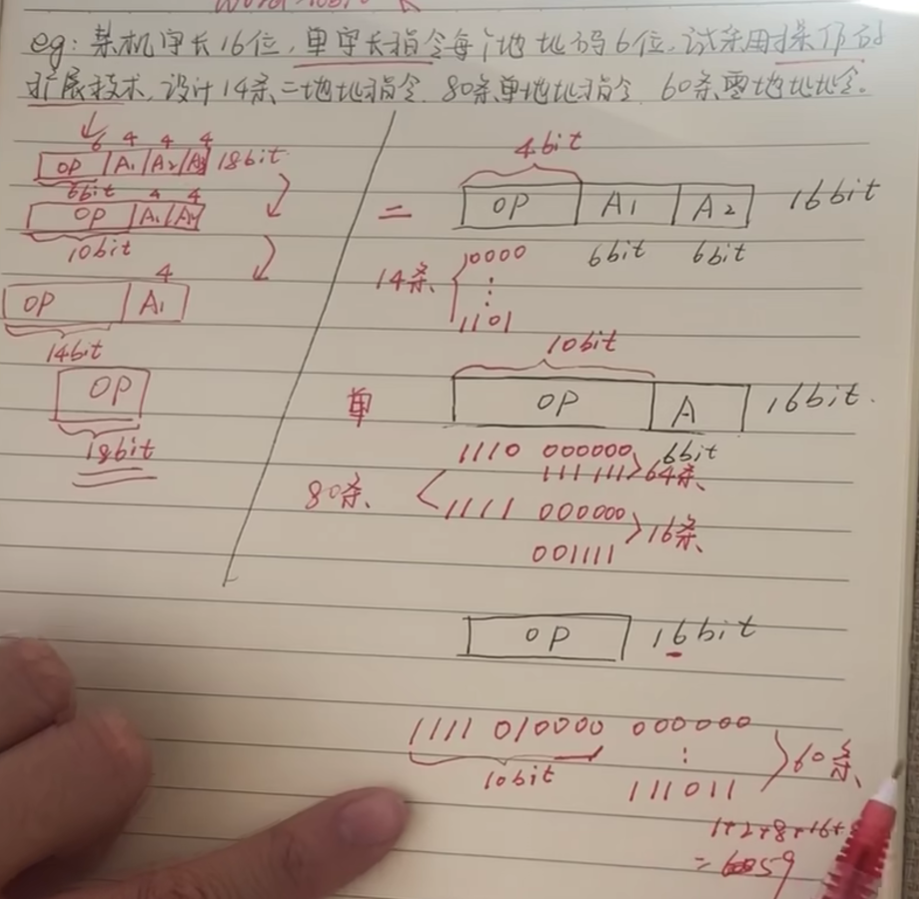 eg: 某机字长16位,单字长指令每个地址码6位,试采用操作码
扩展技术,设计14条二地址指令,80条单地址指令,60条零地址指令。
6 4 4 4
OP A1 A2 A3 18bit
6bit 4 4
OP A1 A2
10bit
4
OP A1
14bit
OP
18bit
4bit
二 OP A1 A2 16bit
6bit 6bit
14条 0000
⋮
1101
10bit
单 OP A 16bit
6bit
80条
1110 000000
111111 64条
1111 000000
001111 16条
OP 16bit
1111 010000 000000
⋮
10bit
111011 60条
1+2+8+16+
= 59